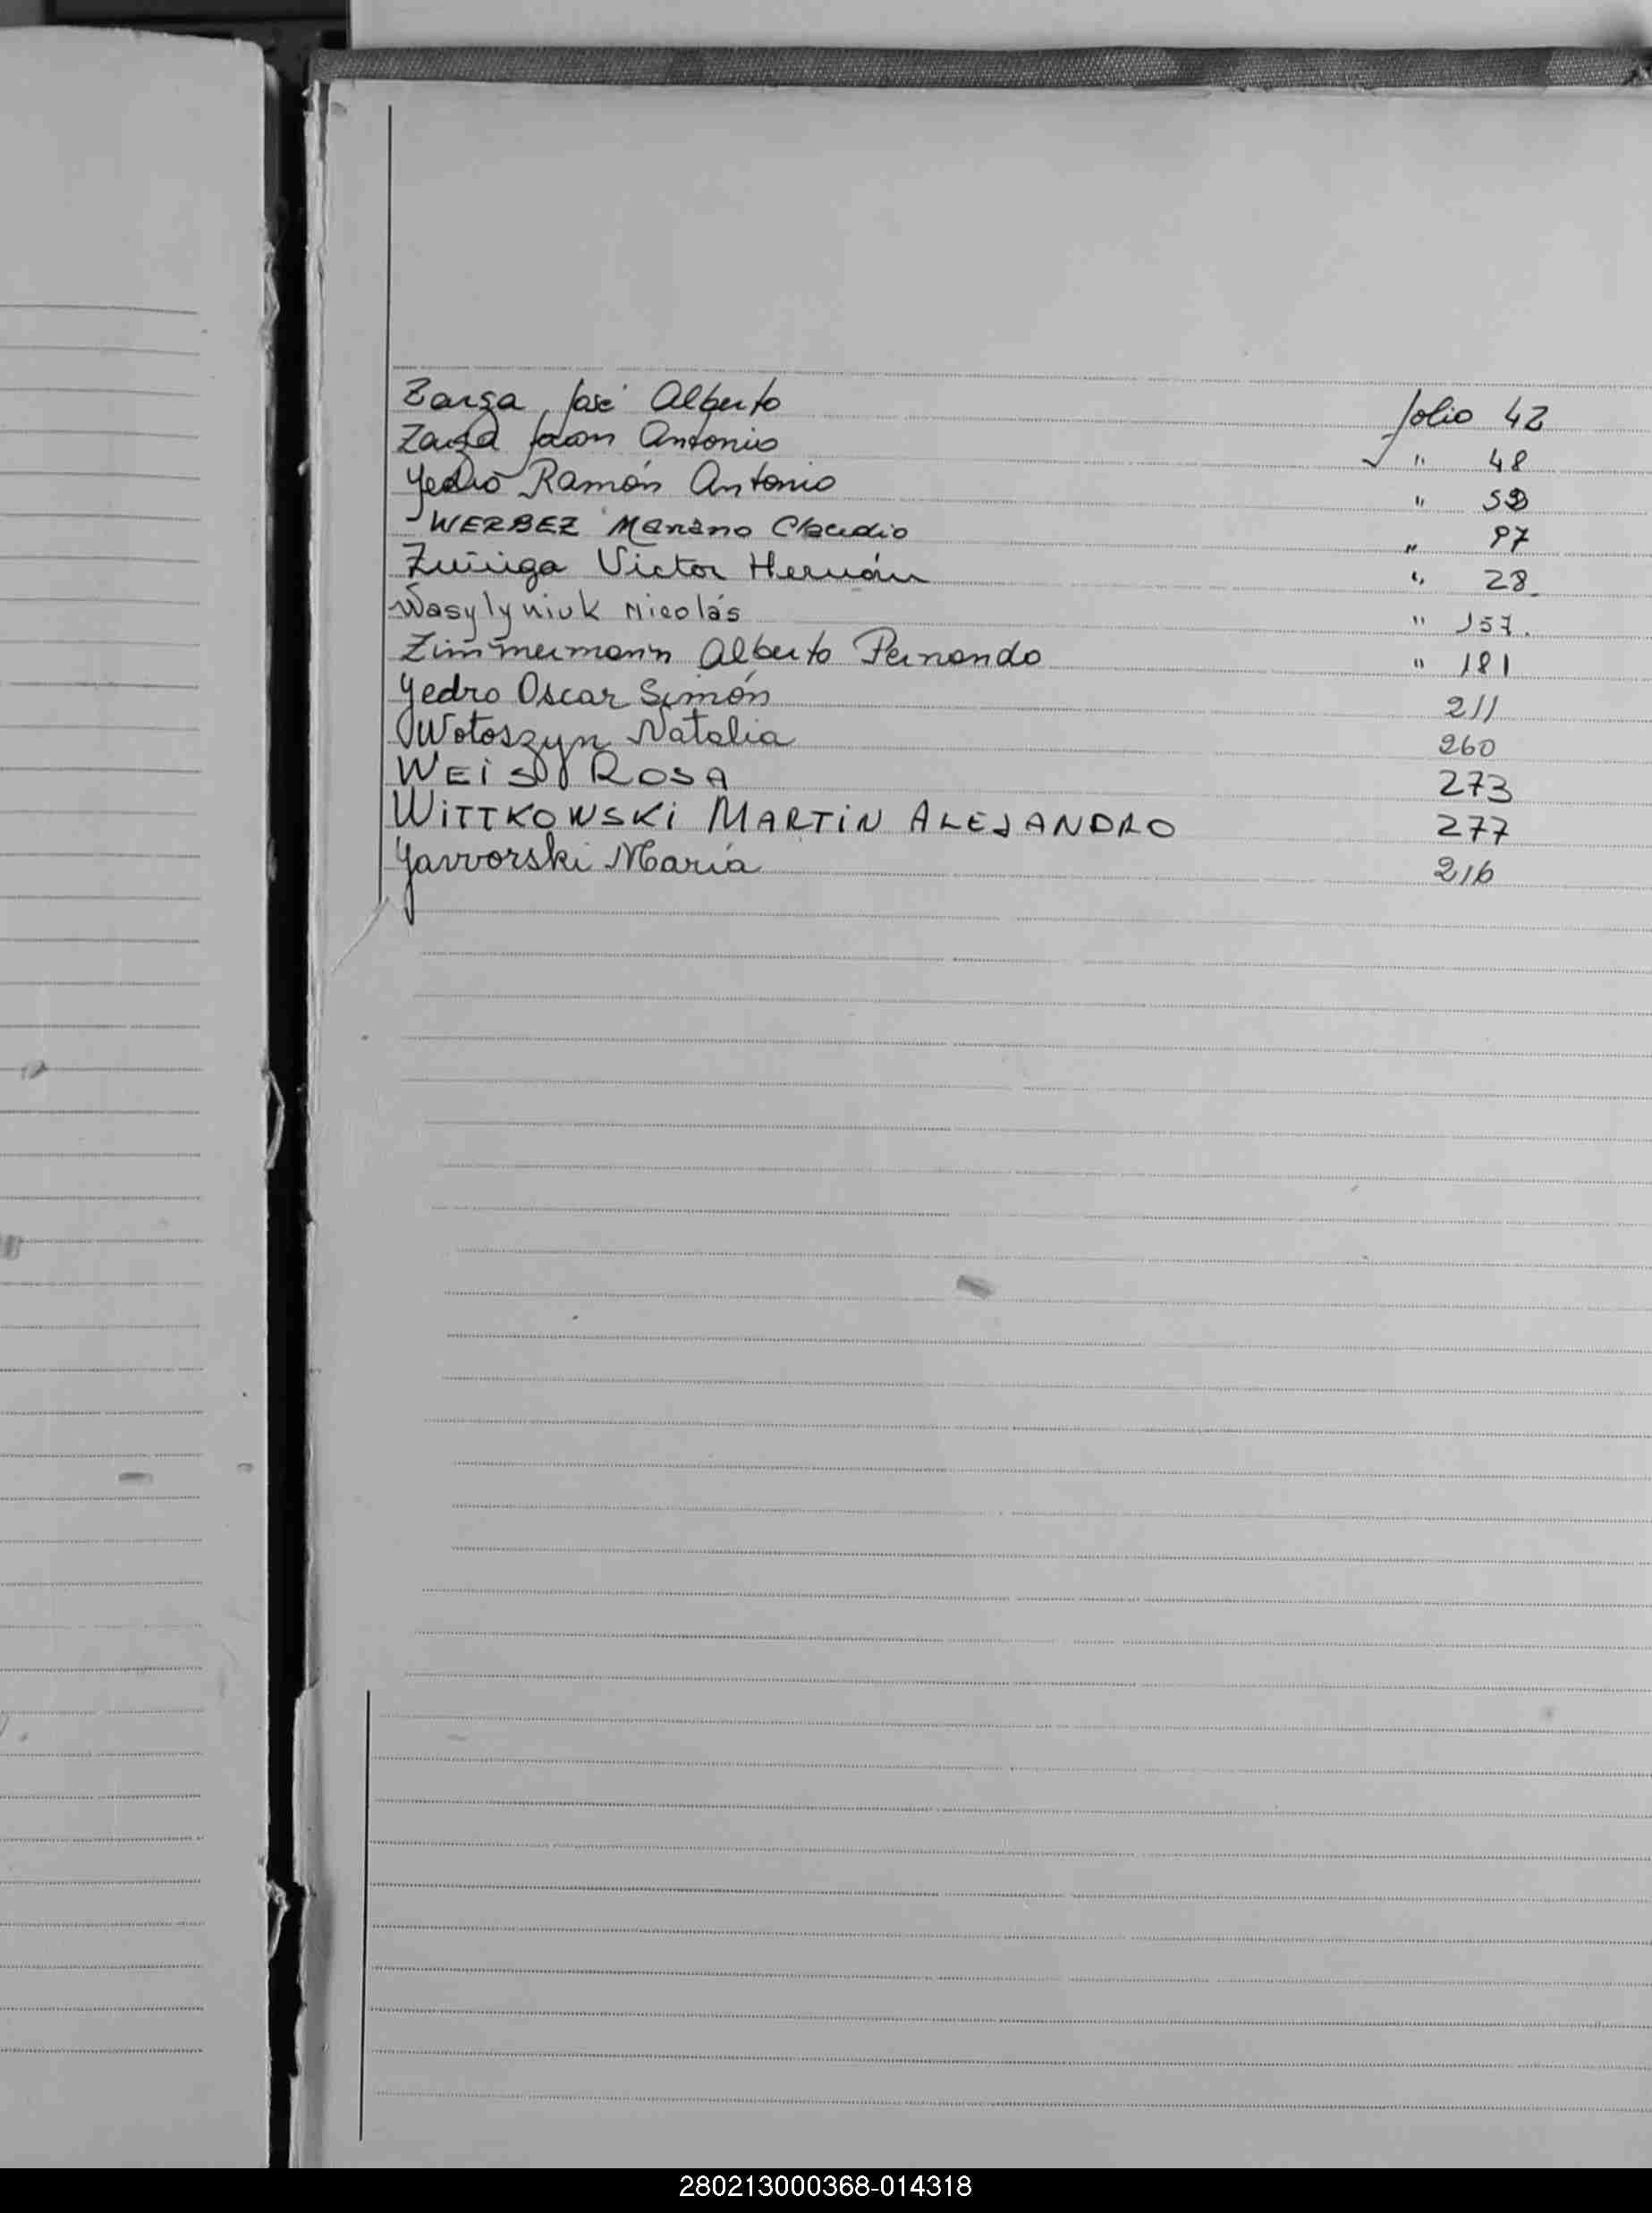 Zarza, José Alberto folio 42
Zarza Juan Antonio " 48
Yedro Ramón Antonio "
WERBEZ Mariano Claudio " 97
Zuñiga Victor Hernán " 28
Wasylyniuk Nicolás " 157.
Zimmermann Alberto Fernando " 181
Yedro Oscar Simón 211
Wotoszyn Natalia 260
WEIS ROSA 273
WITTKOWSKI MARTIN ALEJANDRO 277
Yavvorski María 216
280213000368-014318